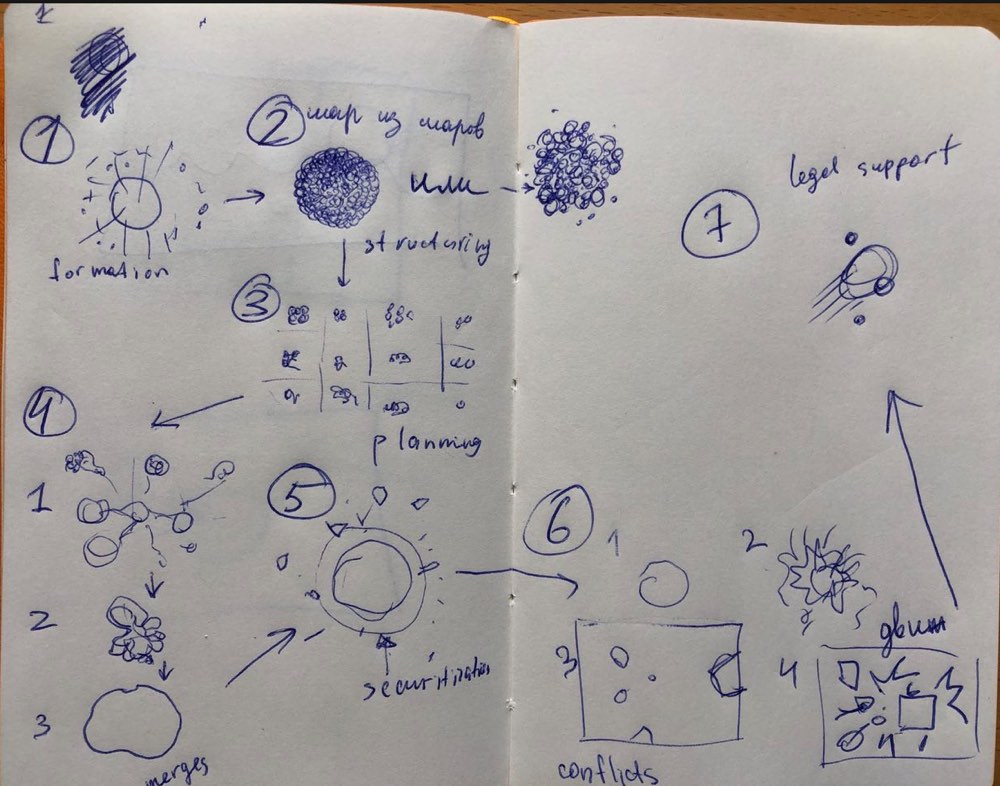 1
1
formation
2 шар из шаров
или
structuring
3
planning
4
1
2
3
merges
5
securitization
6
1
2
3
4
conflicts
движ
7
legal support